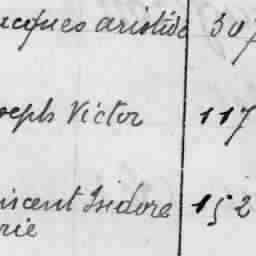 acques aristide 307
oseph Victor 117
incent Isidore 152
rie